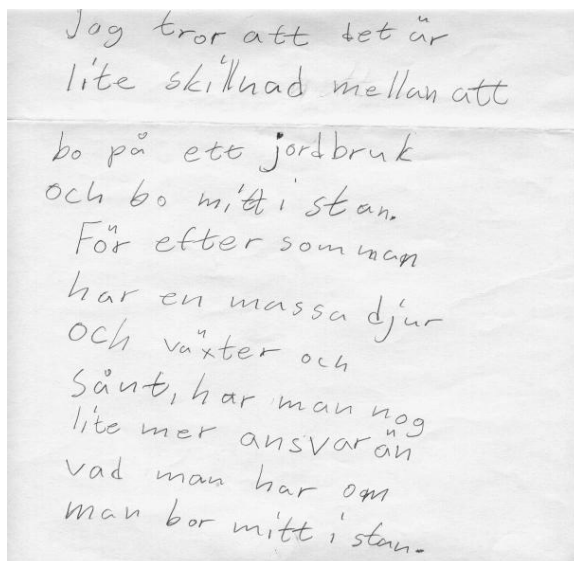 Jag tror att det är
lite skillnad mellan att
bo på ett jordbruk
och bo mitt i stan.
För efter som man
har en massa djur
och växter och
sånt, har man nog
lite mer ansvar än
vad man har om
man bor mitt i stan.